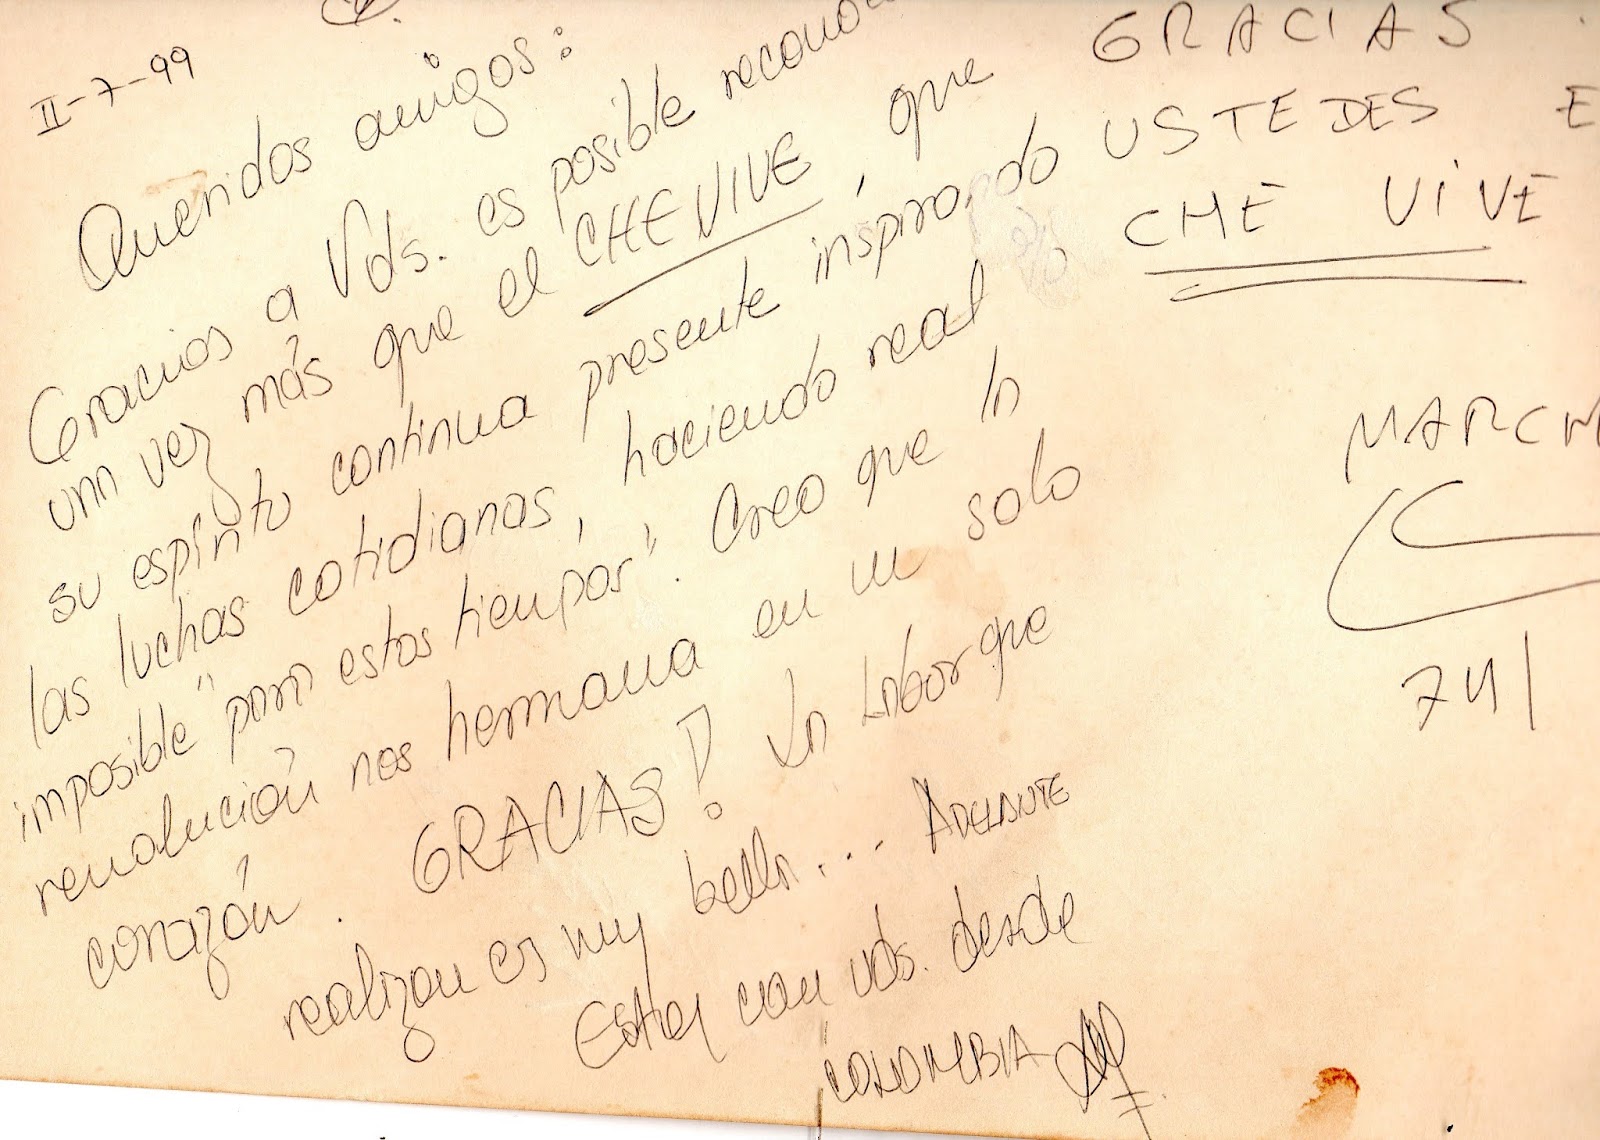 II-7-99
Queridos amigos:
Gracias a Vds. es posible
una vez más que el CHE VIVE, que
su espíritu continua presente inspirando
las luchas cotidianas, haciendo real lo
imposible "para estos tiempos". Creo que la
revolución nos hermana en un solo
corazón. GRACIAS! La labor que
realizan es muy bella... ADELANTE
Estoy con vds. desde
COLOMBIA
GRACIAS
USTEDES E
CHE VIVE
741